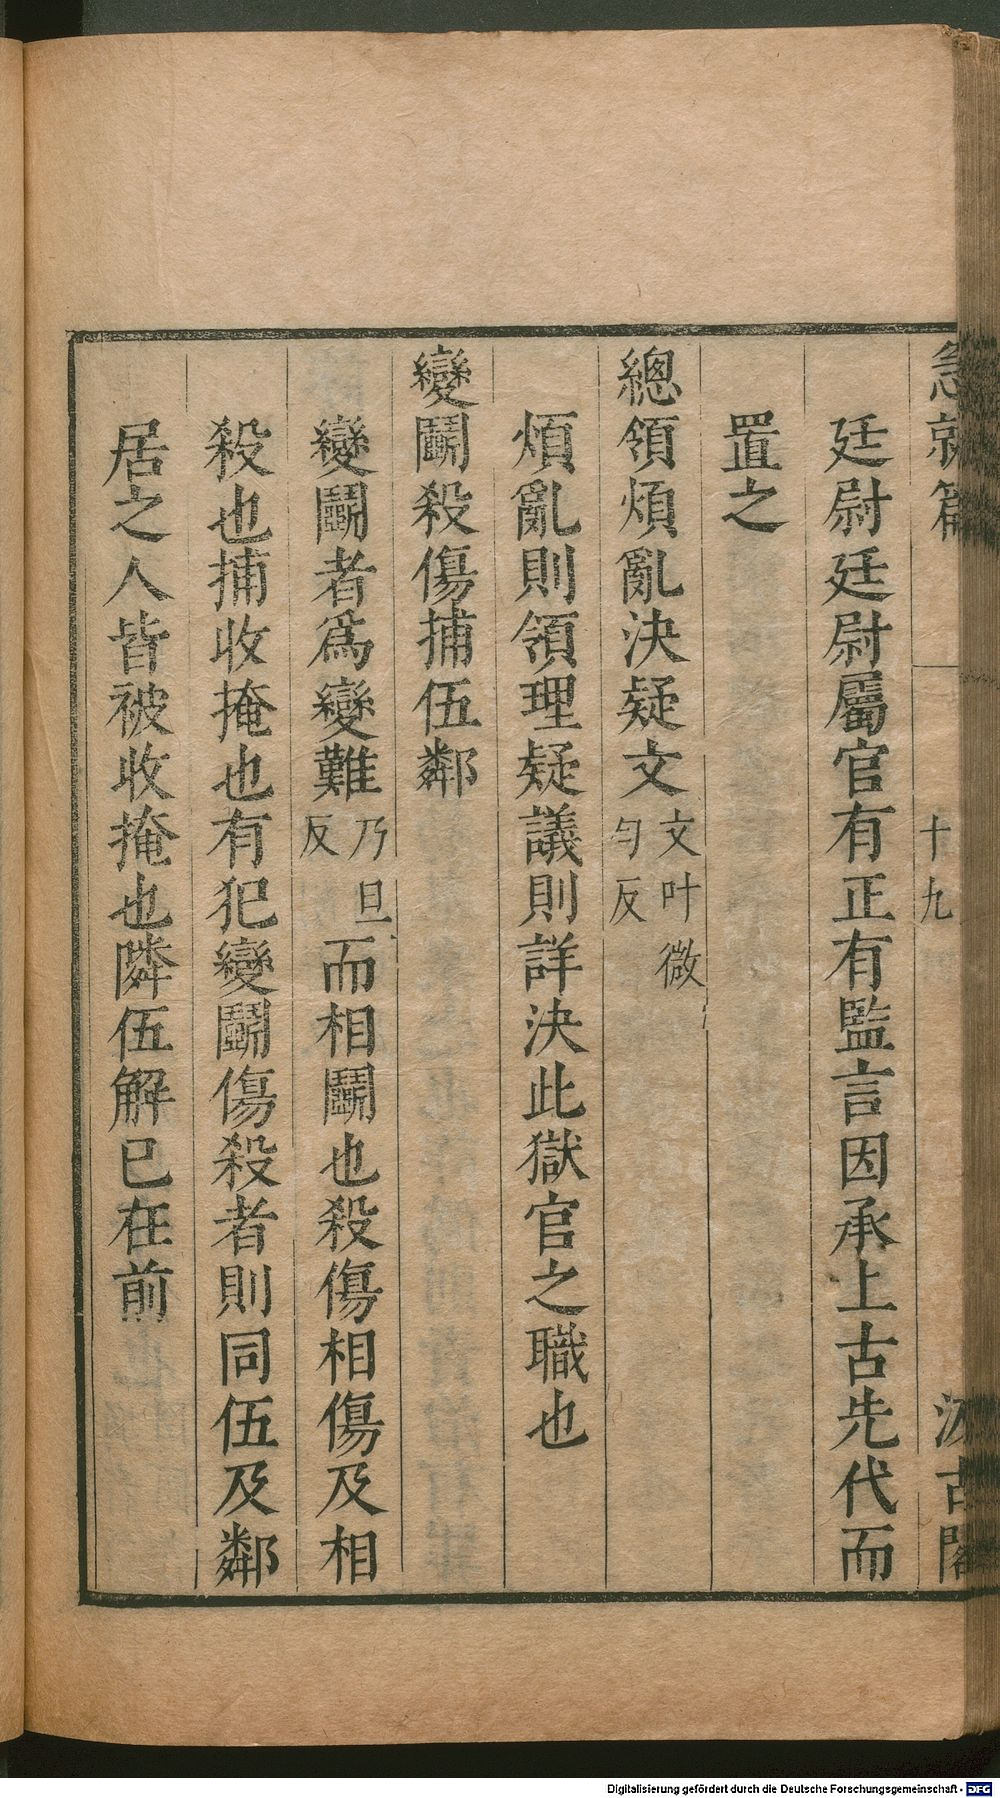 急就篇 十九 汲古閣
廷尉廷尉屬官有正有監言因承上古先代而
置之
總領煩亂決疑文文叶微勻反
煩亂則領理疑議則詳決此獄官之職也
變鬭殺傷捕伍鄰
變鬭者爲變難乃旦反而相鬭也殺傷相傷及相
殺也捕收掩也有犯變鬭傷殺者則同伍及鄰
居之人皆被收掩也隣伍解已在前
Digitalisierung gefördert durch die Deutsche Forschungsgemeinschaft - DFG